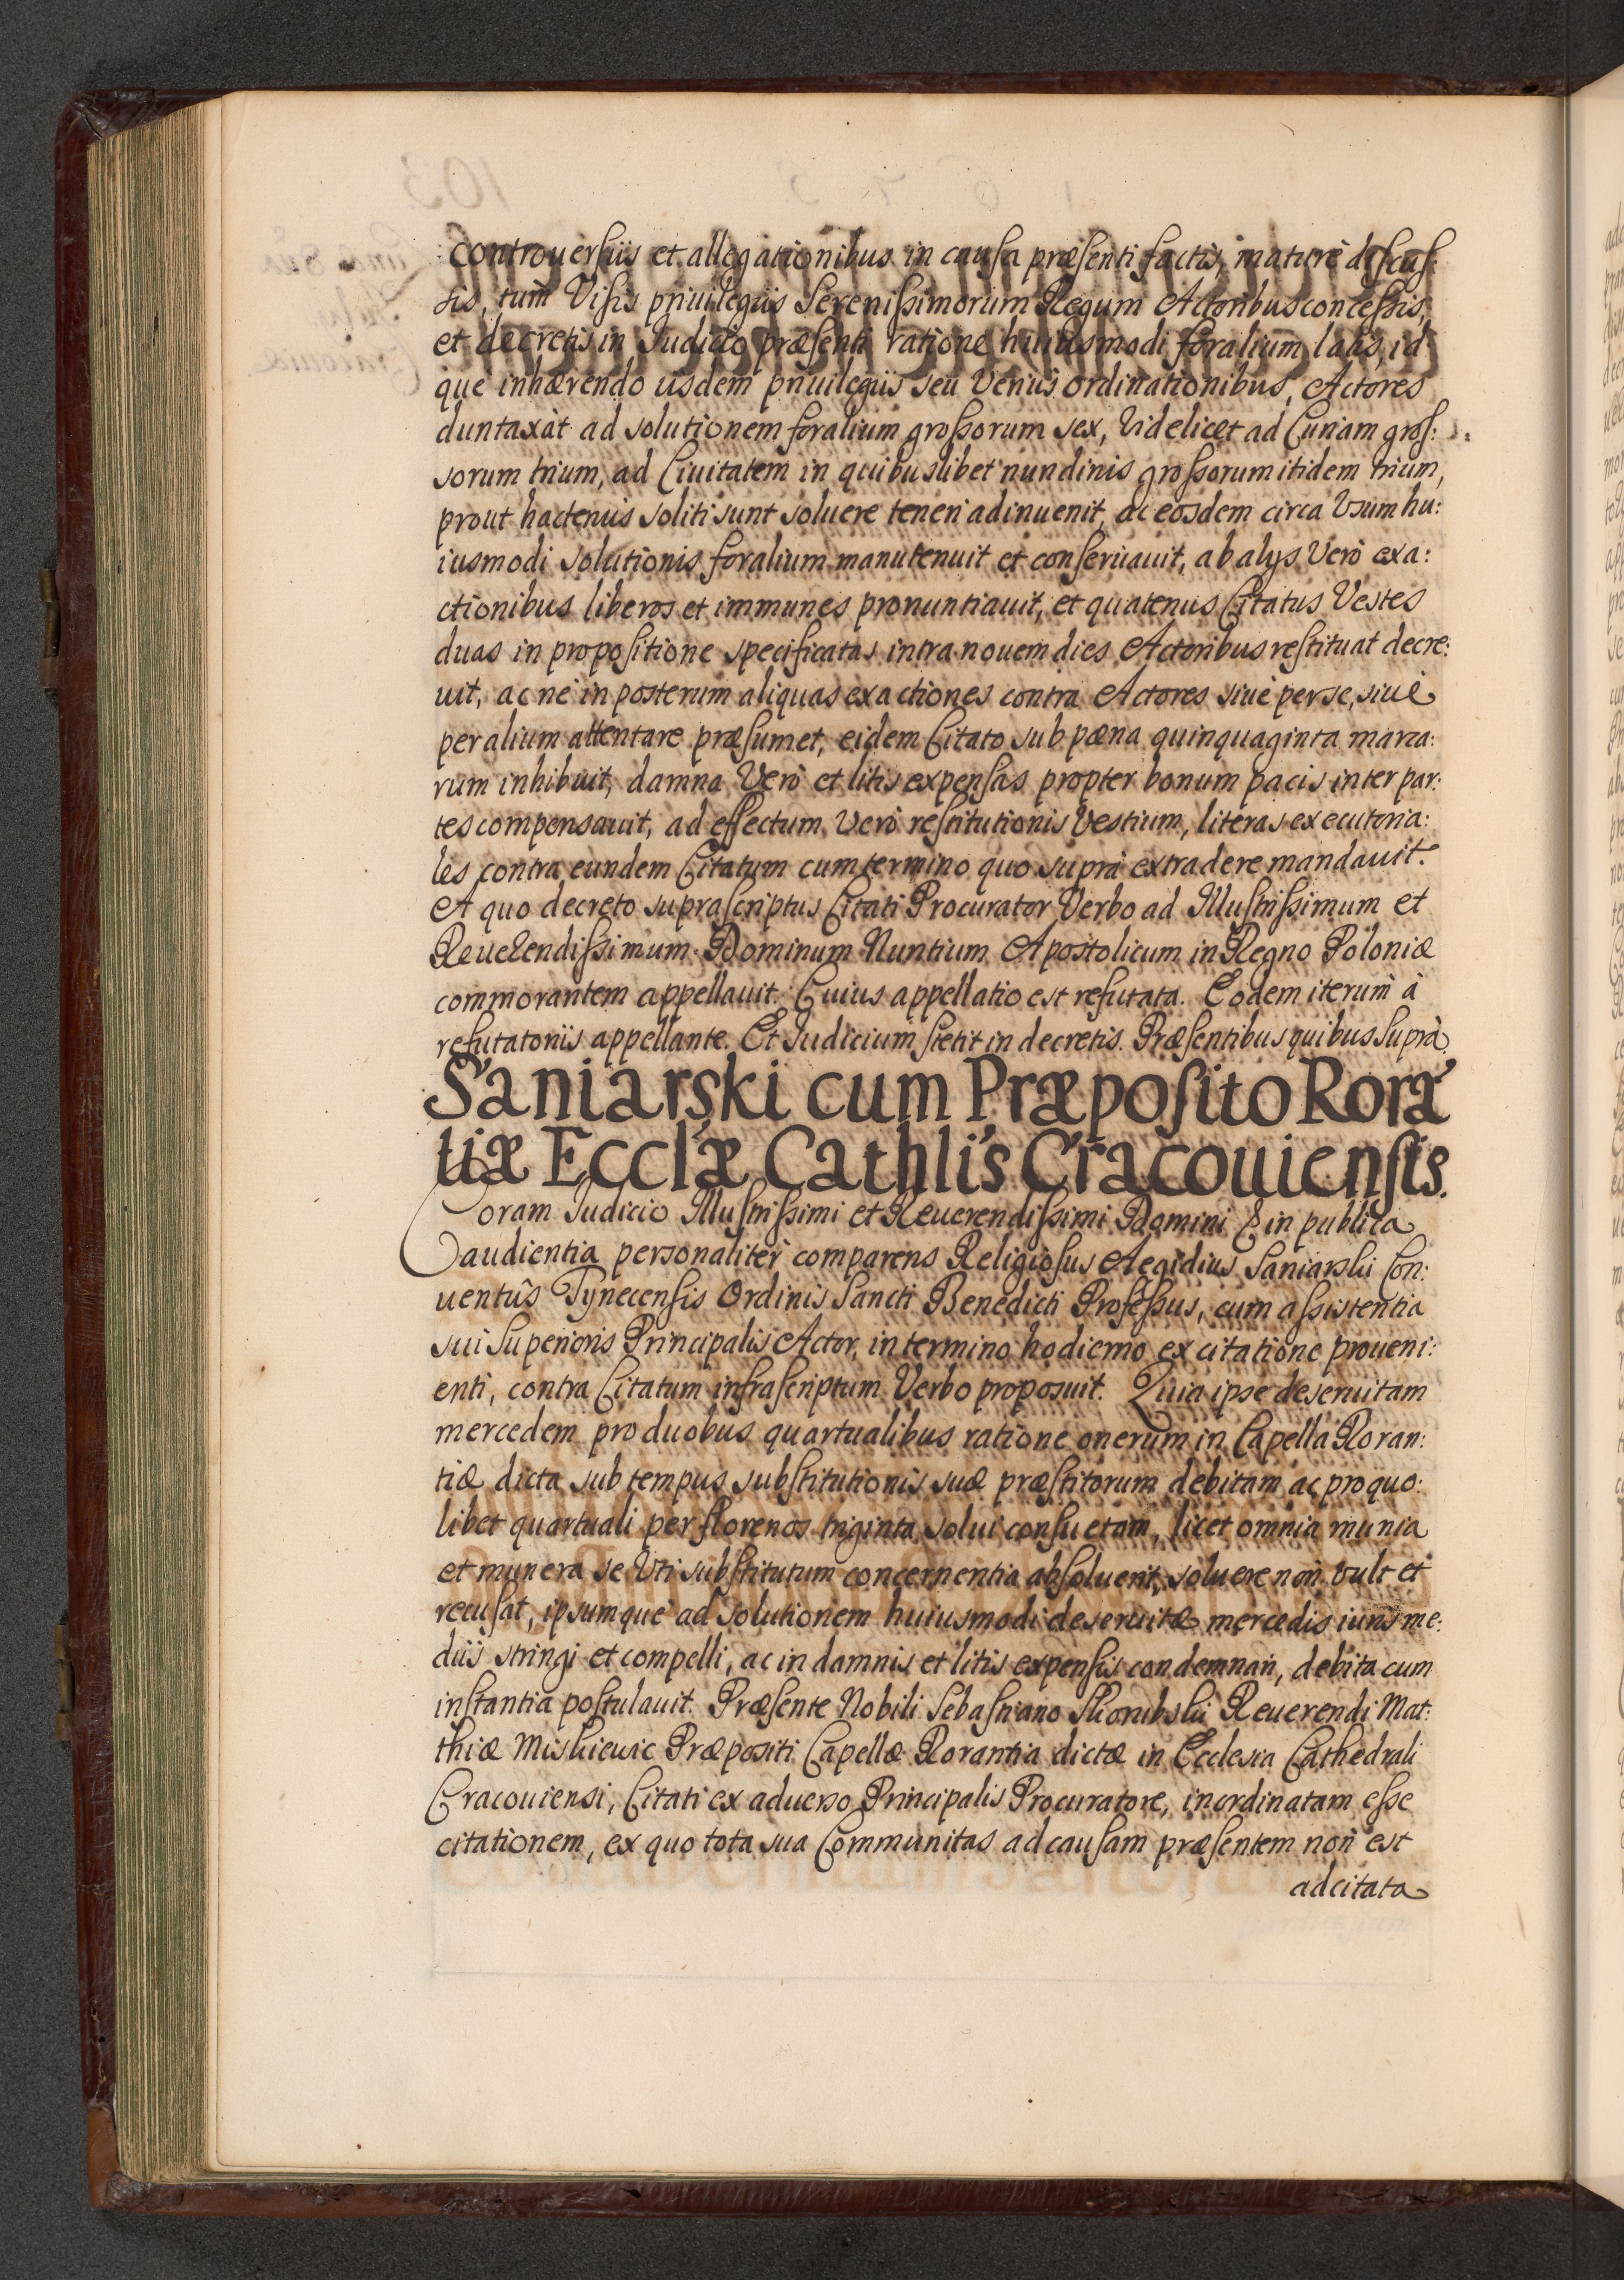 controuersiis et allegationibus in causa præsenti factis, maturè discus:
sis, tum Visis priuilegiis Serenissimorum Regum Actoribus concessis,
et decretis in Judicio præsenti ratione huiusmodi foralium latis, id
què inhærendo iisdem priuilegiis seu Veriùs ordinationibus, Actores
duntaxàt ad solutionem foralium grossorum sex, Videlicet ad Curiam gros:
sorum trium, ad Ciuitatem in quibuslibet nundinis grossorum itidem trium,
prout hactenùs soliti sunt soluere teneri adinuenit, ac eosdem circa Vsum hu:
iusmodi solutionis foralium manutenuit et conseruauit, ab alys Verò exa:
ctionibus liberos et immunes pronuntiauit, et quatenus Citatus Vestes
duas in propositione specificatas intra nouem dies Actoribus restituat decre:
uit, ac nè in posterum aliquas exactiones contra Actores siuè per se, siuè
per alium attentare præsumet, eidem Citato sub pæna quinquaginta marca:
rum inhibuit, damna Verò et litis expensas propter bonum pacis inter par:
tes compensauit, ad effectum Verò restitutionis Vestium, literas executoria:
les contra eundem Citatum cum termino quo suprà extradere mandauit.
A quo decreto suprascriptus Citati Procurator Verbo ad Illustrissimum et
Reuerendissimum Dominum Nuntium Apostolicum in Regno Poloniæ
commorantem appellauit. Cuius appellatio est refutata. Eodem iterum à
refutatoriis appellante. Et Judicium stetit in decretis. Præsentibus quibus suprà
Saniarski cum Præposito Rorā
tiæ Ecclæ Cathlis Cracouiensis.
Coram Judicio Illustrissimi et Reuerendissimi Domini & in publica
audientia personaliter comparens Religiosus Aegidius Saniarski Con:
uentûs Tynecensis Ordinis Sancti Benedicti Professus, cum assistentia
sui Superioris Principalis Actor, in termino hodierno ex citatione proueni:
enti, contra Citatum infrascriptum Verbo proposuit. Quia ipse deseruitam
mercedem pro duobus quartualibus ratione onerum in Capella Roran:
tiæ dicta sub tempus substitutionis suæ præstitorum debitam ac pro quo:
libet quartuali per florenos triginta solui consuetam, licet omnia munia
et munera se Vti substitutum concernentia absoluerit, soluere non vult et
recusat, ipsumquè ad solutionem huiusmodi deseruitæ mercedis iuris me:
diis stringi et compelli, ac in damnis et litis expensis condemnari, debita cum
instantia postulauit. Præsente Nobili Sebastiano Skorubski Reuerendi Mat:
thiæ Miskiewic Præpositi Capellæ Rorantia dictæ in Ecclesia Cathedrali
Cracouiensi, Citati ex aduerso Principalis Procuratore, inordinatam esse
citationem, ex quo tota sua Communitas ad causam præsentem non est
adcitata